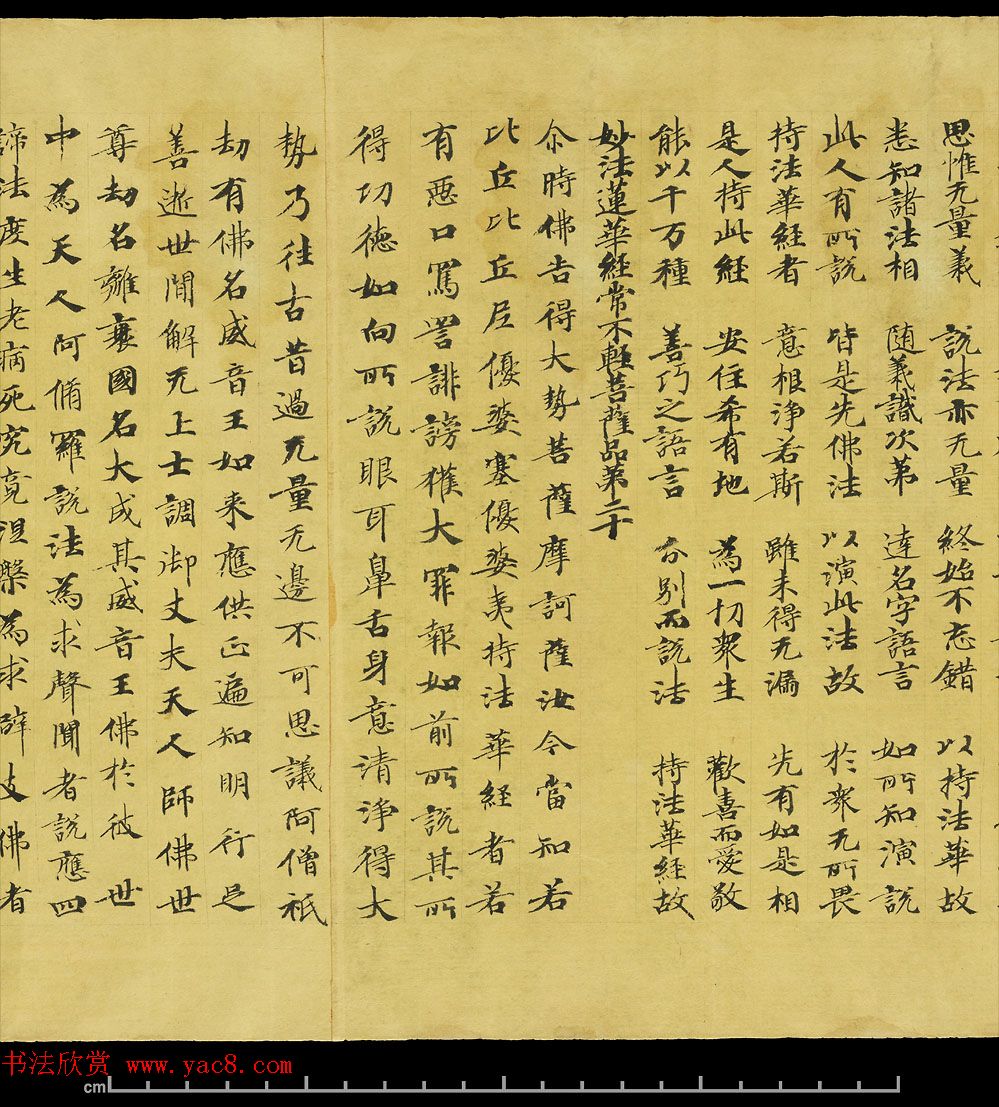 思惟无量義 說法亦无量 終始不忘錯 以持法華故
悉知諸法相 随義識次第 達名字語言 如所知演說
此人有所說 皆是先佛法 以演此法故 於衆无所畏
持法華経者 意根淨若斯 雖未得无漏 先有如是相
是人持此経 安住希有地 為一切衆生 歡喜而愛敬
能以千万種 善巧之語言 分別而說法 持法華経故
妙法蓮華経常不輕菩薩品第二十
尒時佛告得大勢菩薩摩訶薩汝今當知若
比丘比丘尼優婆塞優婆夷持法華経者若
有惡口罵詈誹謗獲大罪報如前所說其所
得功德如向所說眼耳鼻舌身意清淨得大
勢乃往古昔過无量无邊不可思議阿僧祇
劫有佛名威音王如来應供正遍知明行足
善逝世間解无上士調御丈夫天人師佛世
尊劫名離衰國名大成其威音王佛於彼世
中為天人阿脩羅說法為求聲聞者說應四
諦法度生老病死究竟涅槃為求辟支佛者
书法欣赏 www.yac8.com
cm